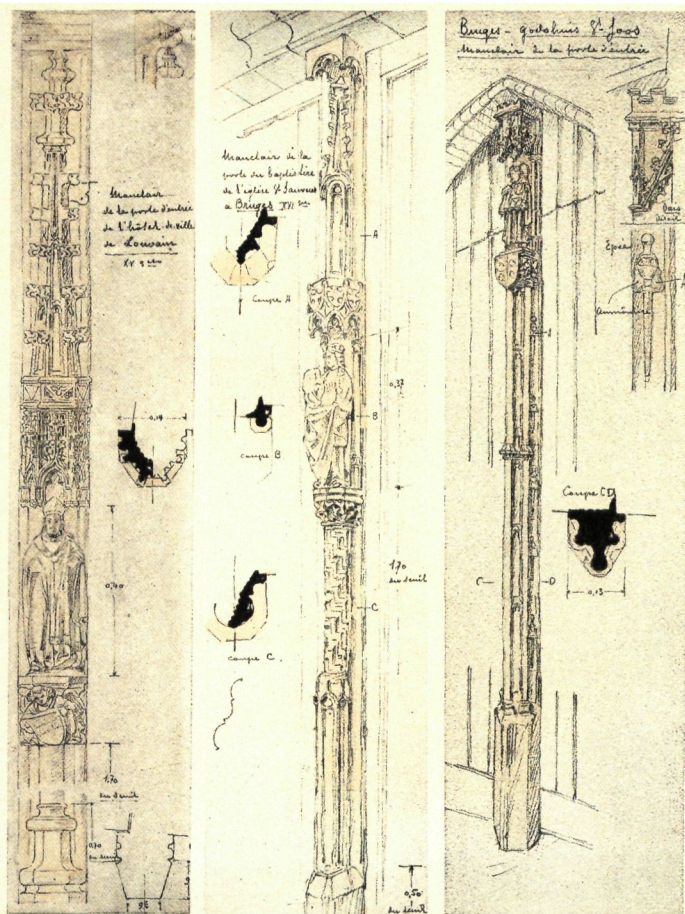 Mauclair
de la porte d'entrée
de l'hôtel de ville
de Louvain
XV s
0,14
0,40
1,70
du seuil
0,70
du seuil
Mauclair de la
porte du baptistère
de l'église St Sauveur
a Bruges XVI
Coupe A
A
0,37
B
coupe B
1,70
du seuil
C
coupe C.
0,50
du seuil
Bruges - godshuis St Joos
Mauclair de la porte d'entrée
Dais
Détail
Epée
A
Aumônière
A
Coupe CD
C
D
0,13